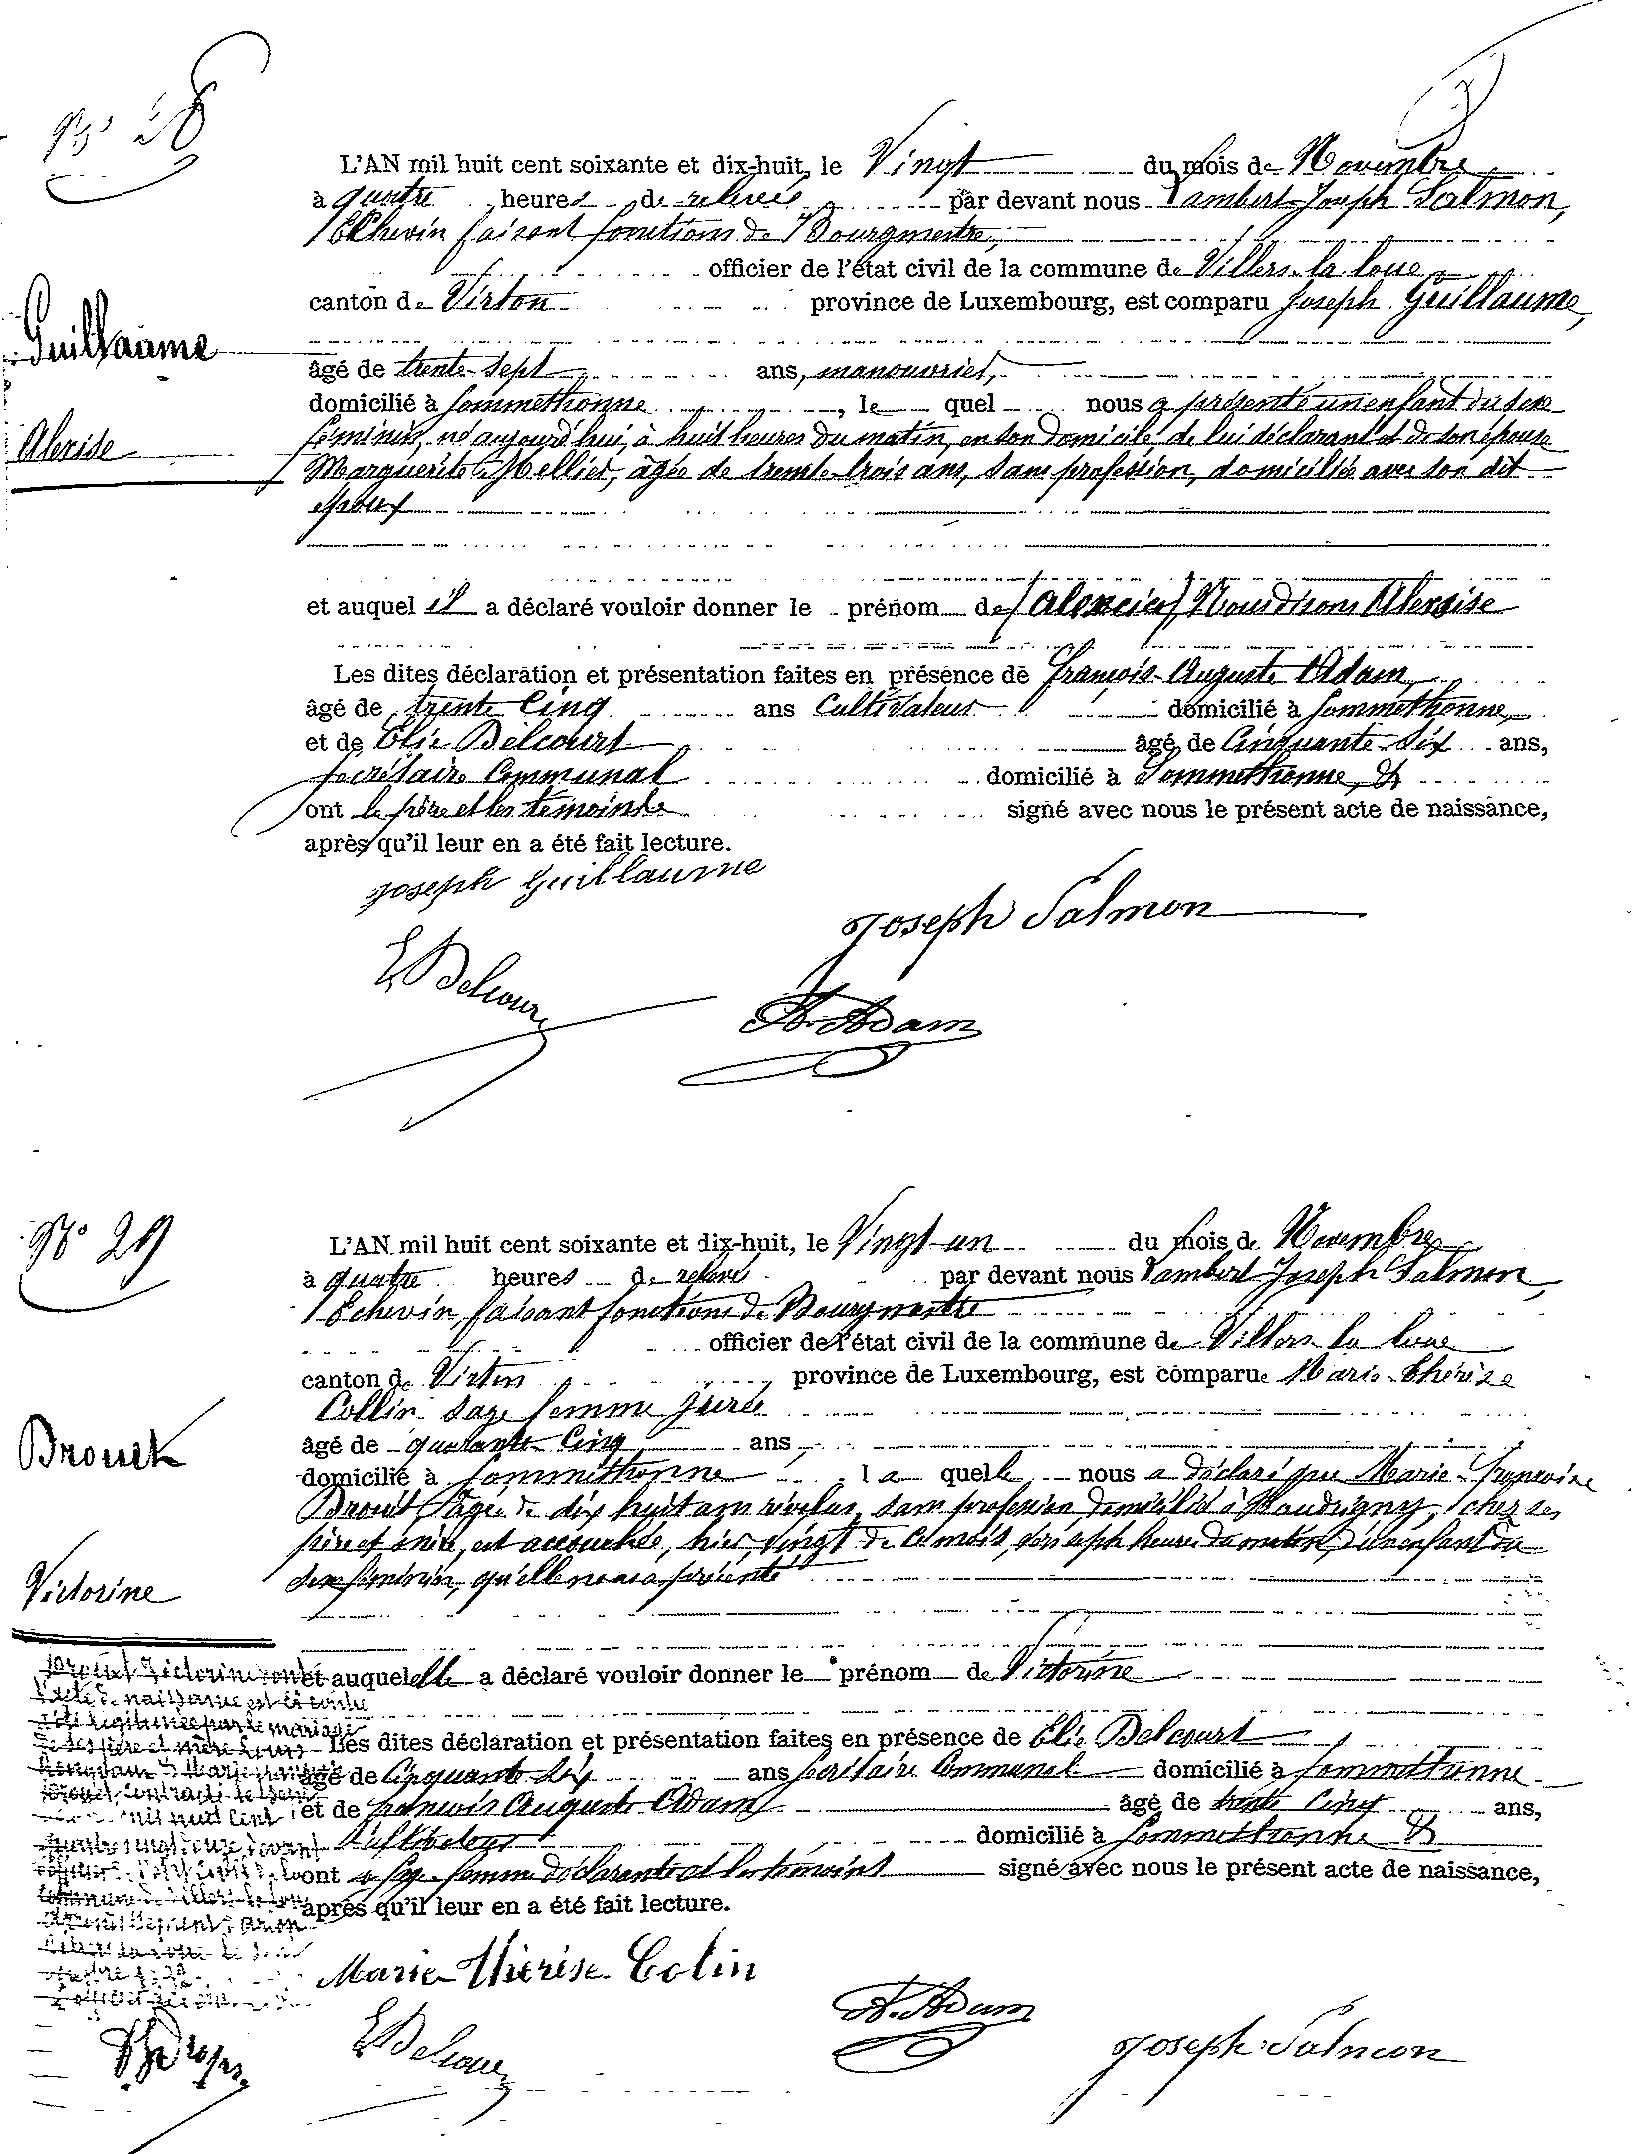 N° 28
L'AN mil huit cent soixante et dix-huit, le Vingt du mois de Novembre
à quatre heures de relevée par devant nous Lambert Joseph Salmon,
Echevin faisant fonctions de Bourgmestre,
officier de l'état civil de la commune de Villers-la-loue
canton de Virton province de Luxembourg, est comparu Joseph Guillaume,
Guillaume
âgé de trente-sept ans, manouvrier,
domicilié à Sommethonne, le quel nous a présenté un enfant du sexe
Alexise
féminin, né aujourd'hui, à huit heures du matin, en son domicile, de lui déclarant et de son épouse
Marguerite Mellier, âgée de trente-trois ans, sans profession, domiciliée avec son dit
époux
et auquel il a déclaré vouloir donner le prénom de (Alexcie) Nous disons Alexise
Les dites déclaration et présentation faites en présence de François-Auguste Adam,
âgé de trente Cinq ans Cultivateur domicilié à Sommethonne,
et de Elie Delcourt âgé de Cinquante-Six ans,
Secrétaire Communal domicilié à Sommethonne, &
ont le père et les témoins signé avec nous le présent acte de naissance,
après qu'il leur en a été fait lecture.
Joseph Guillaume
Joseph Salmon
E Delcour
A. Adam
N° 29
L'AN mil huit cent soixante et dix-huit, le Vingt-un du mois de Novembre
à quatre heures de relevé par devant nous Lambert Joseph Salmon,
Echevin, faisant fonctions de Bourgmestre
officier de l'état civil de la commune de Villers la loue
canton de Virton province de Luxembourg, est comparue Marie-Thérèse
Collin sage femme jurée
Brouet
âgé de quarante Cinq ans
domicilié à Sommethonne la quelle nous a déclaré que Marie-Françoise
Brouet âgée de dix huit ans révolus, sans profession domicilié à Houdrigny, chez ses
père et mère, est accouchée, hier, vingt de ce mois, vers sept heures du matin, d'un enfant du
sexe féminin, qu'elle nous a présenté
Victorine
et auquel elle a déclaré vouloir donner le prénom de Victorine
Brouet Victorine dont
l'acte de naissance est ci contre
a été légitimée par le mariage
de ses père et mère Louis
Les dites déclaration et présentation faites en présence de Elie Delcourt
âgé de Cinquante Six ans Secrétaire Communal domicilié à Sommethonne
et de François Auguste Adam âgé de trente Cinq ans,
Cultivateur domicilié à Sommethonne &
ont la sage-femme déclarante et les témoins signé avec nous le présent acte de naissance,
après qu'il leur en a été fait lecture.
Marie-Thérèse Colin
E Delcour
A. Adam
Joseph Salmon